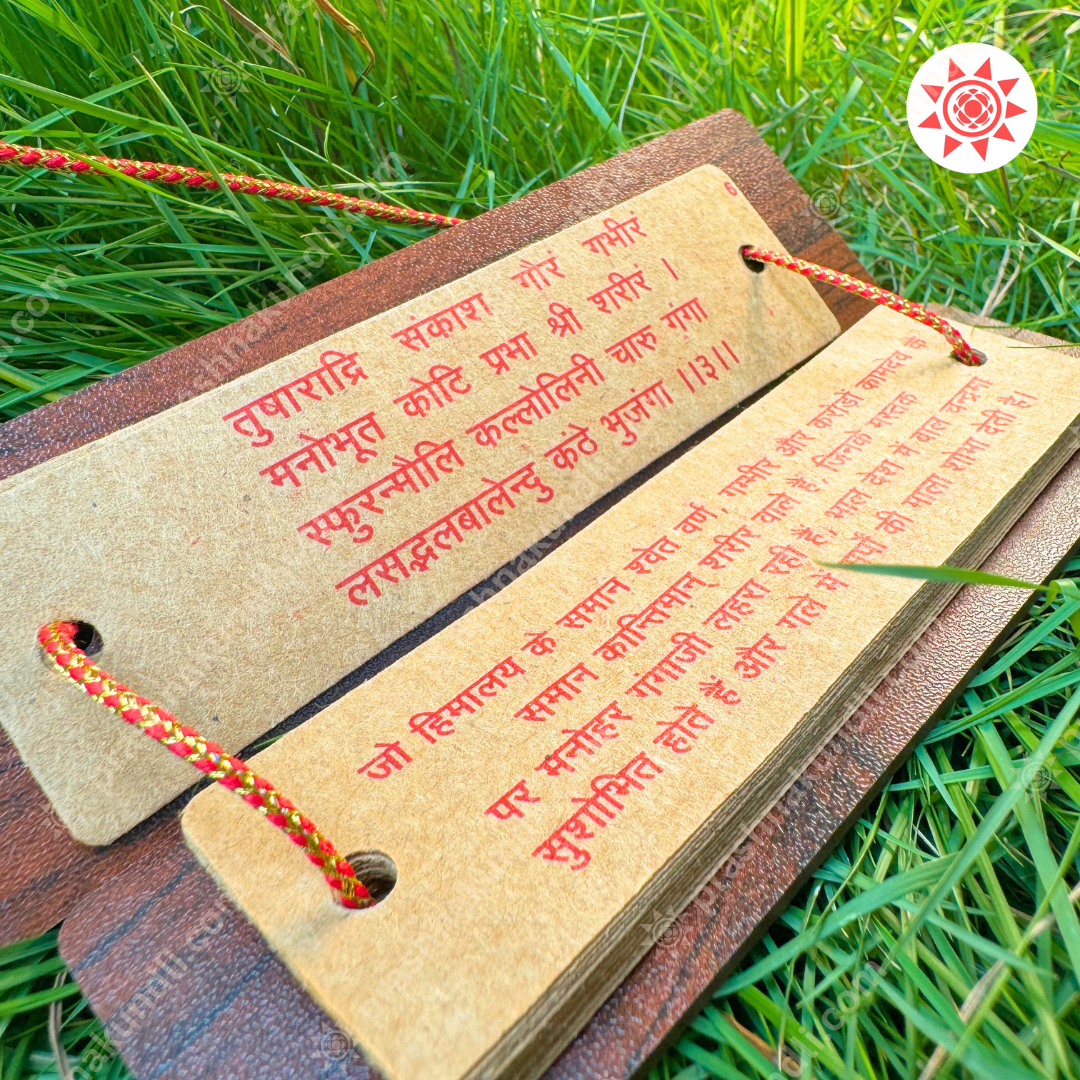 ६
तुषाराद्रि संकाश गौरं गभीरं
मनोभूत कोटि प्रभा श्री शरीरं ।
स्फुरन्मौलि कल्लोलिनी चारु गंगा
लसद्भालबालेन्दु कंठे भुजंगा ।।३।।
जो हिमालय के समान श्वेत वर्ण, गम्भीर और करोड़ों कामदेव के
समान कान्तिमान् शरीर वाले हैं, जिनके मस्तक
पर मनोहर गंगाजी लहरा रही हैं, भाल देश में बाल चन्द्रमा
सुशोभित होते हैं और गले में सर्पों की माला शोभा देती है।